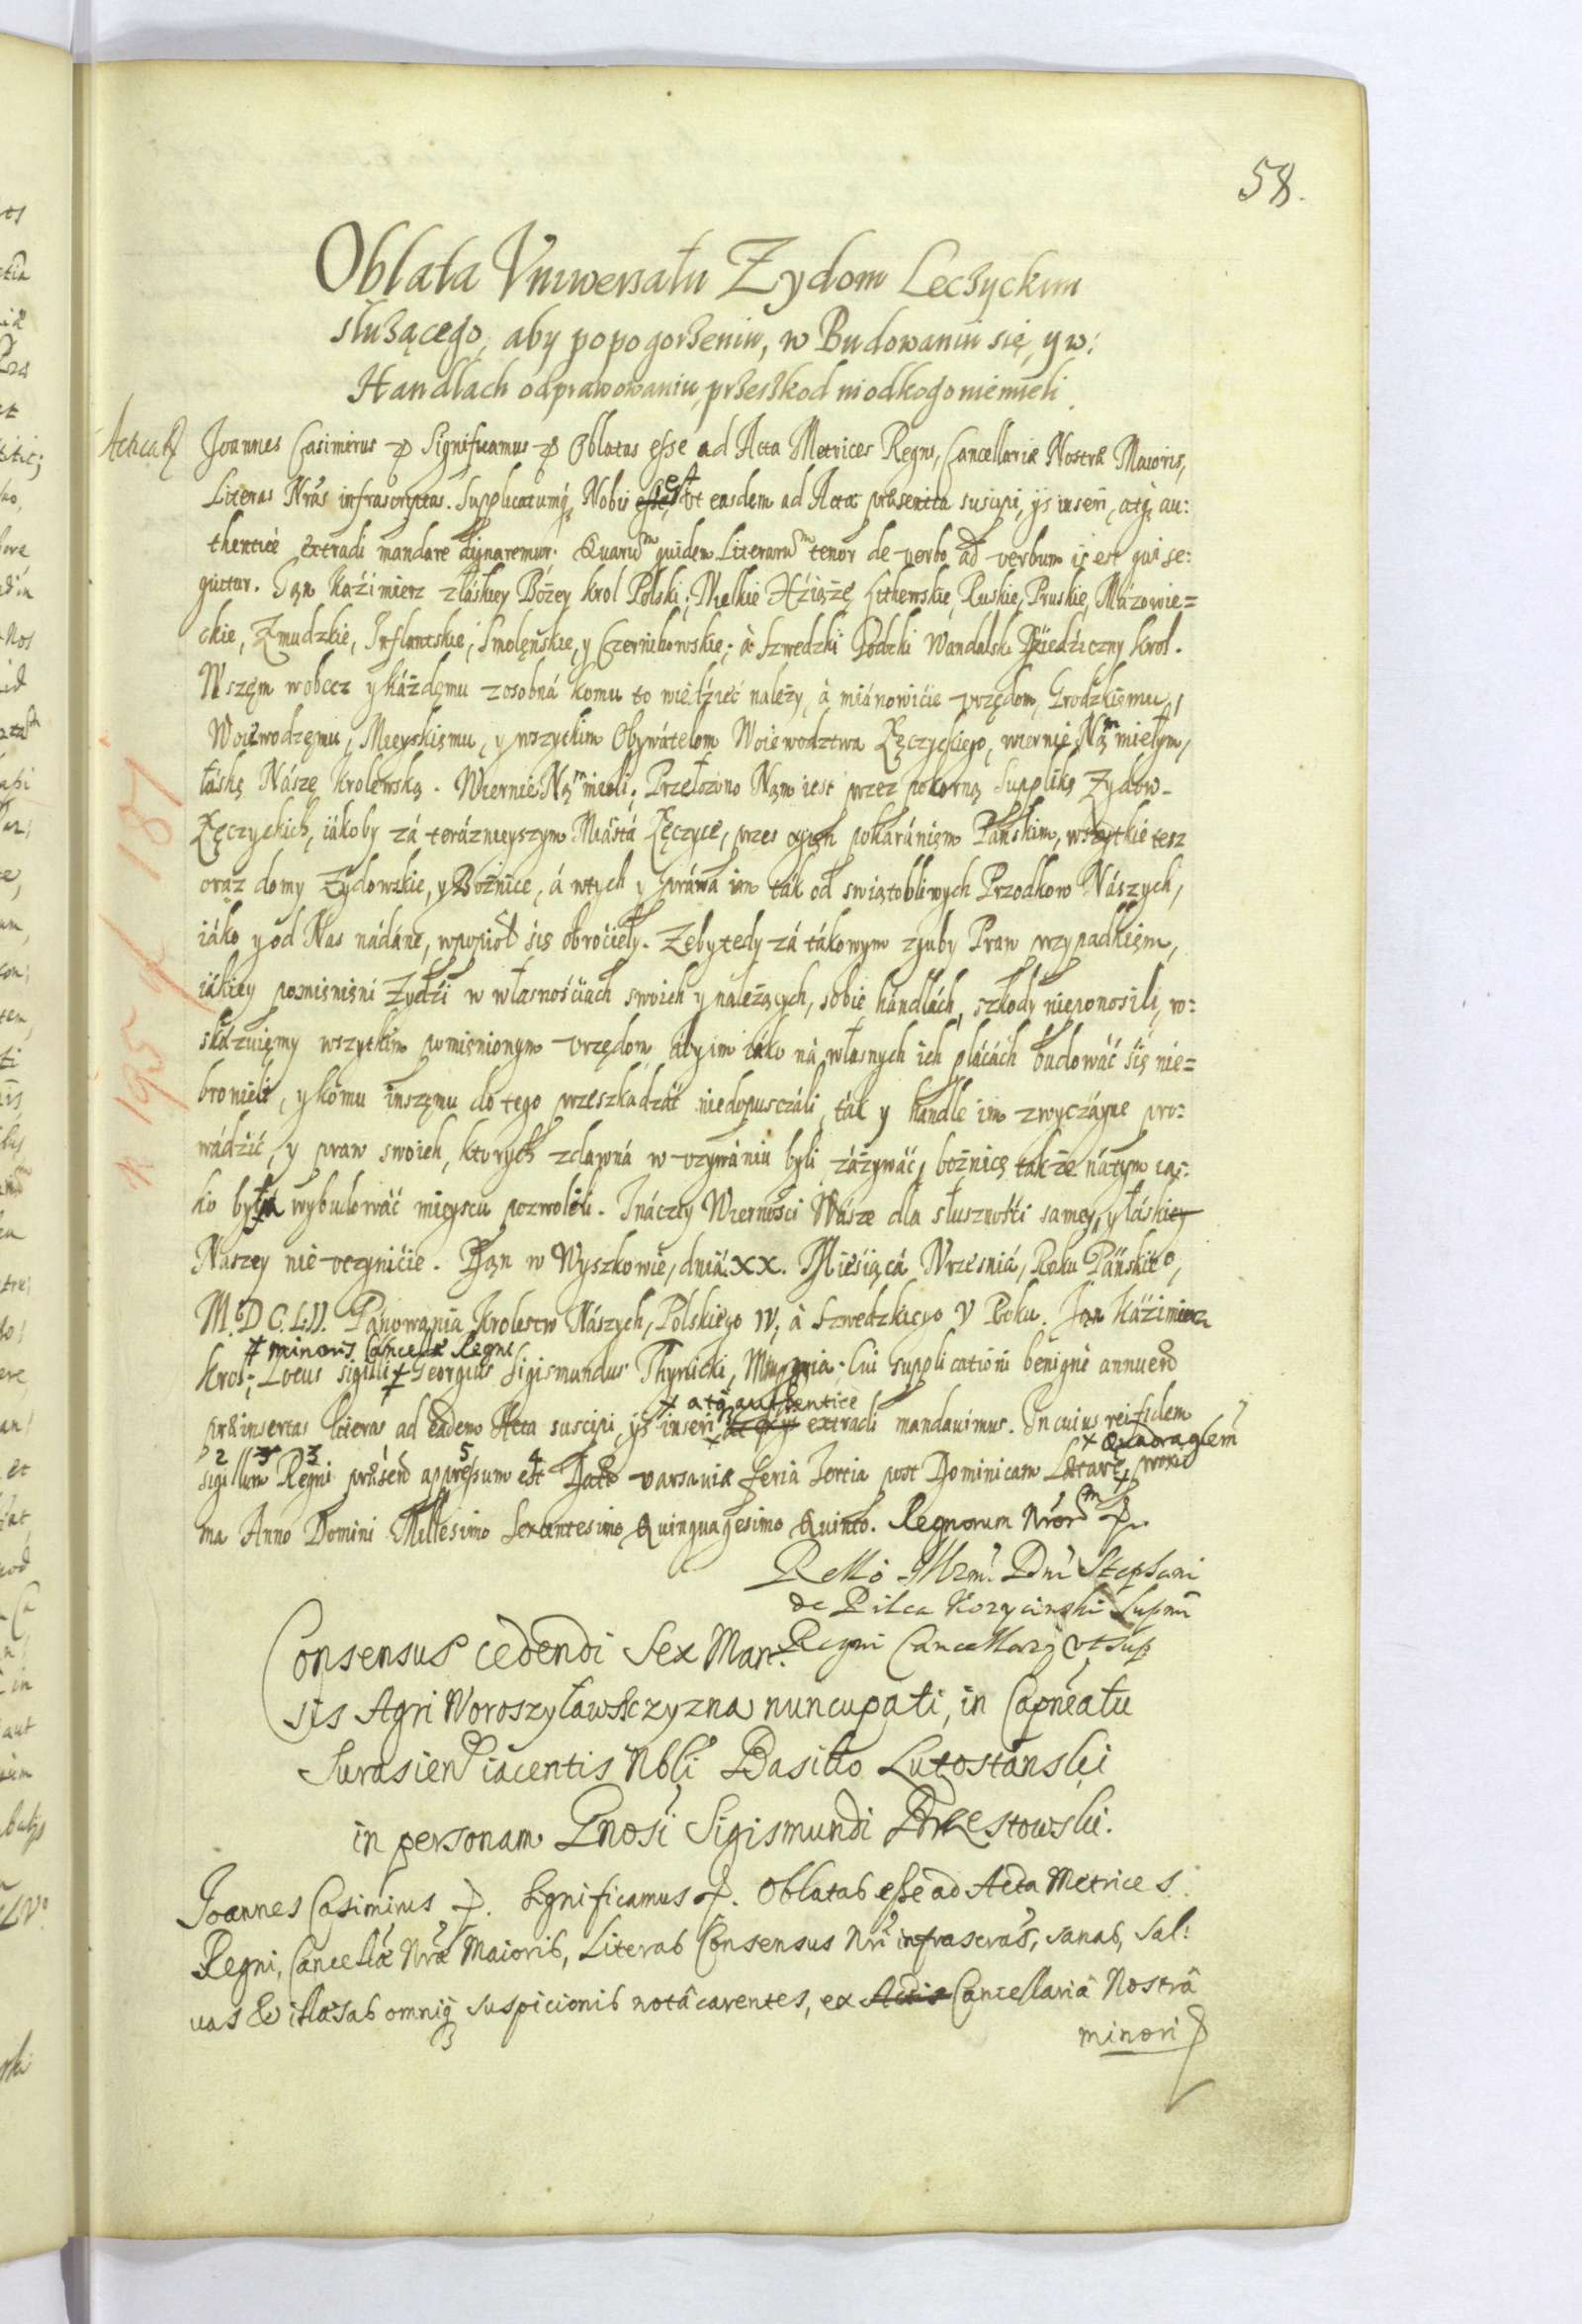 58.
Oblata Vniwersału Zydom Leczyckim
służącego, aby po pogorzeniu, w Budowaniu się, y w:
Handlach odprawowaniu, przeszkod niodkogo niemieli.
Joannes Casimirus Significamus Oblatas esse ad Acta Metrices Regni, Cancellariæ Nostræ Maioris,
Literas Nrás infrascriptas. Supplicatumq; Nobis esse, est vt easdem ad Acta præsentia suscipi, ijs inseri, atq; au:
thenticè extradi mandare dignaremur. Quarum quidem Literarum tenor de verbo ad verbum is est qui se:
quitur. Jan Kaźimierz z łáskiey Bożey Krol Polski; Wielkie Xiążę Lithewskie, Ruskie, Pruskie, Mázowie=
ckie, Zmudzkie, Inflantskie, Smoleńskie, y Czernihowskie; à Szwedzki Godzki Wandalski Dźiedźiczny Krol.
Wszęm wobecz y káżdęmu zosobná komu to wiedźieć należy, à miánowićie vrzędom, Grodzkięmu,
Woiewodzęmu, Mieyskięmu, y wszyckim Obywátelom Woiewodztwa Łęczyckiego, wiernie Nąm miełym,
łáskę Nászę Krolewską. Wiernie Nąm mieli; Przełożono Nąm iest przez pokorną Supplikę Zydow-
Łęczyckich, iákoby zá teráznieyszym Miástá Łęczyce, przez ogień pokaránięm Páńskim, wszytkie tesz
oraz domy Zydowskie, y Bożnice, á w tych y práwa im ták od swiątobliwych Przodkow Nászych,
iáko y od Nas nádáne, w popioł się obroćieły. Zeby tedy zá tákowym zguby Praw przypadkięm,
iákiey pomięnięni Zydźi w własnośćiach swoich y należących, sobie hándlách, szkody nieponosili, ro:
skázuięmy wszytkim pomięnionym vrzędom áby im iáko ná własnych ich plácách budowáć się nie=
bronieli, y komu inszęmu do tego przeszkadzáć niedopuszczáli, ták y handle im zwyczáyne pro:
wádźić, y praw swoich, ktorych zdawná w vzywániu byli záżywáć, bożnicę także nátym ia:
ko była wybudowáć mieyscu pozwolili. Ináczey Wiernośći Wásze dla słusznośći samey, y łáskiey
Naszey nie vczynićie. Dąn w Wyszkowie, dniá. XX. Mieśiącá Wrześniá, Roku Páńskiego,
M. D C. LII. Pánowánia Krolestw Nászych, Polskiego IV, à Szwedzkiego V Roku. Jan Káżimierz
Krol; Locus Sigilli Georgius Sigismundus Thynicki, mpp
minoris Cancellæ Regni
Cui supplicationi benignè annuend
præinsertas literas ad eadem Acta suscipi, ijs inseri extradi mandauimus. In cuius rei fidem
atq; authentice
sigillum Regni præsend appressum est Datt Varsaviæ feria Tertia post Dominicam Lætare, proxi
2 3 3 5 4
Quadragesem
ma Anno Domini Millesimo Sexcentesimo Quinquagesimo Quinto. Regnorum Nrorum
Rello Illrmi Dni Stephani
de Pilca Korycinski Supmi
Regni Cancellarij vt sup
Consensus cedendi Sex Man:
sis Agri Woroszyławsczyzna nuncupati, in Capneatu
Surasien iacentis Nbli Basilio Lutostański
in personam Gnosi Sigismundi Brzestowski.
Joannes Casimirus. Significamus. Oblatas esse ad Acta Metrices
Regni, Cancellæ Nræ Maioris, Literas Consensus Nri infrascras, sanas, sal:
uas & illæsas omniq; suspicionis notâ carentes, ex Actis Cancellariâ Nostrâ
minori